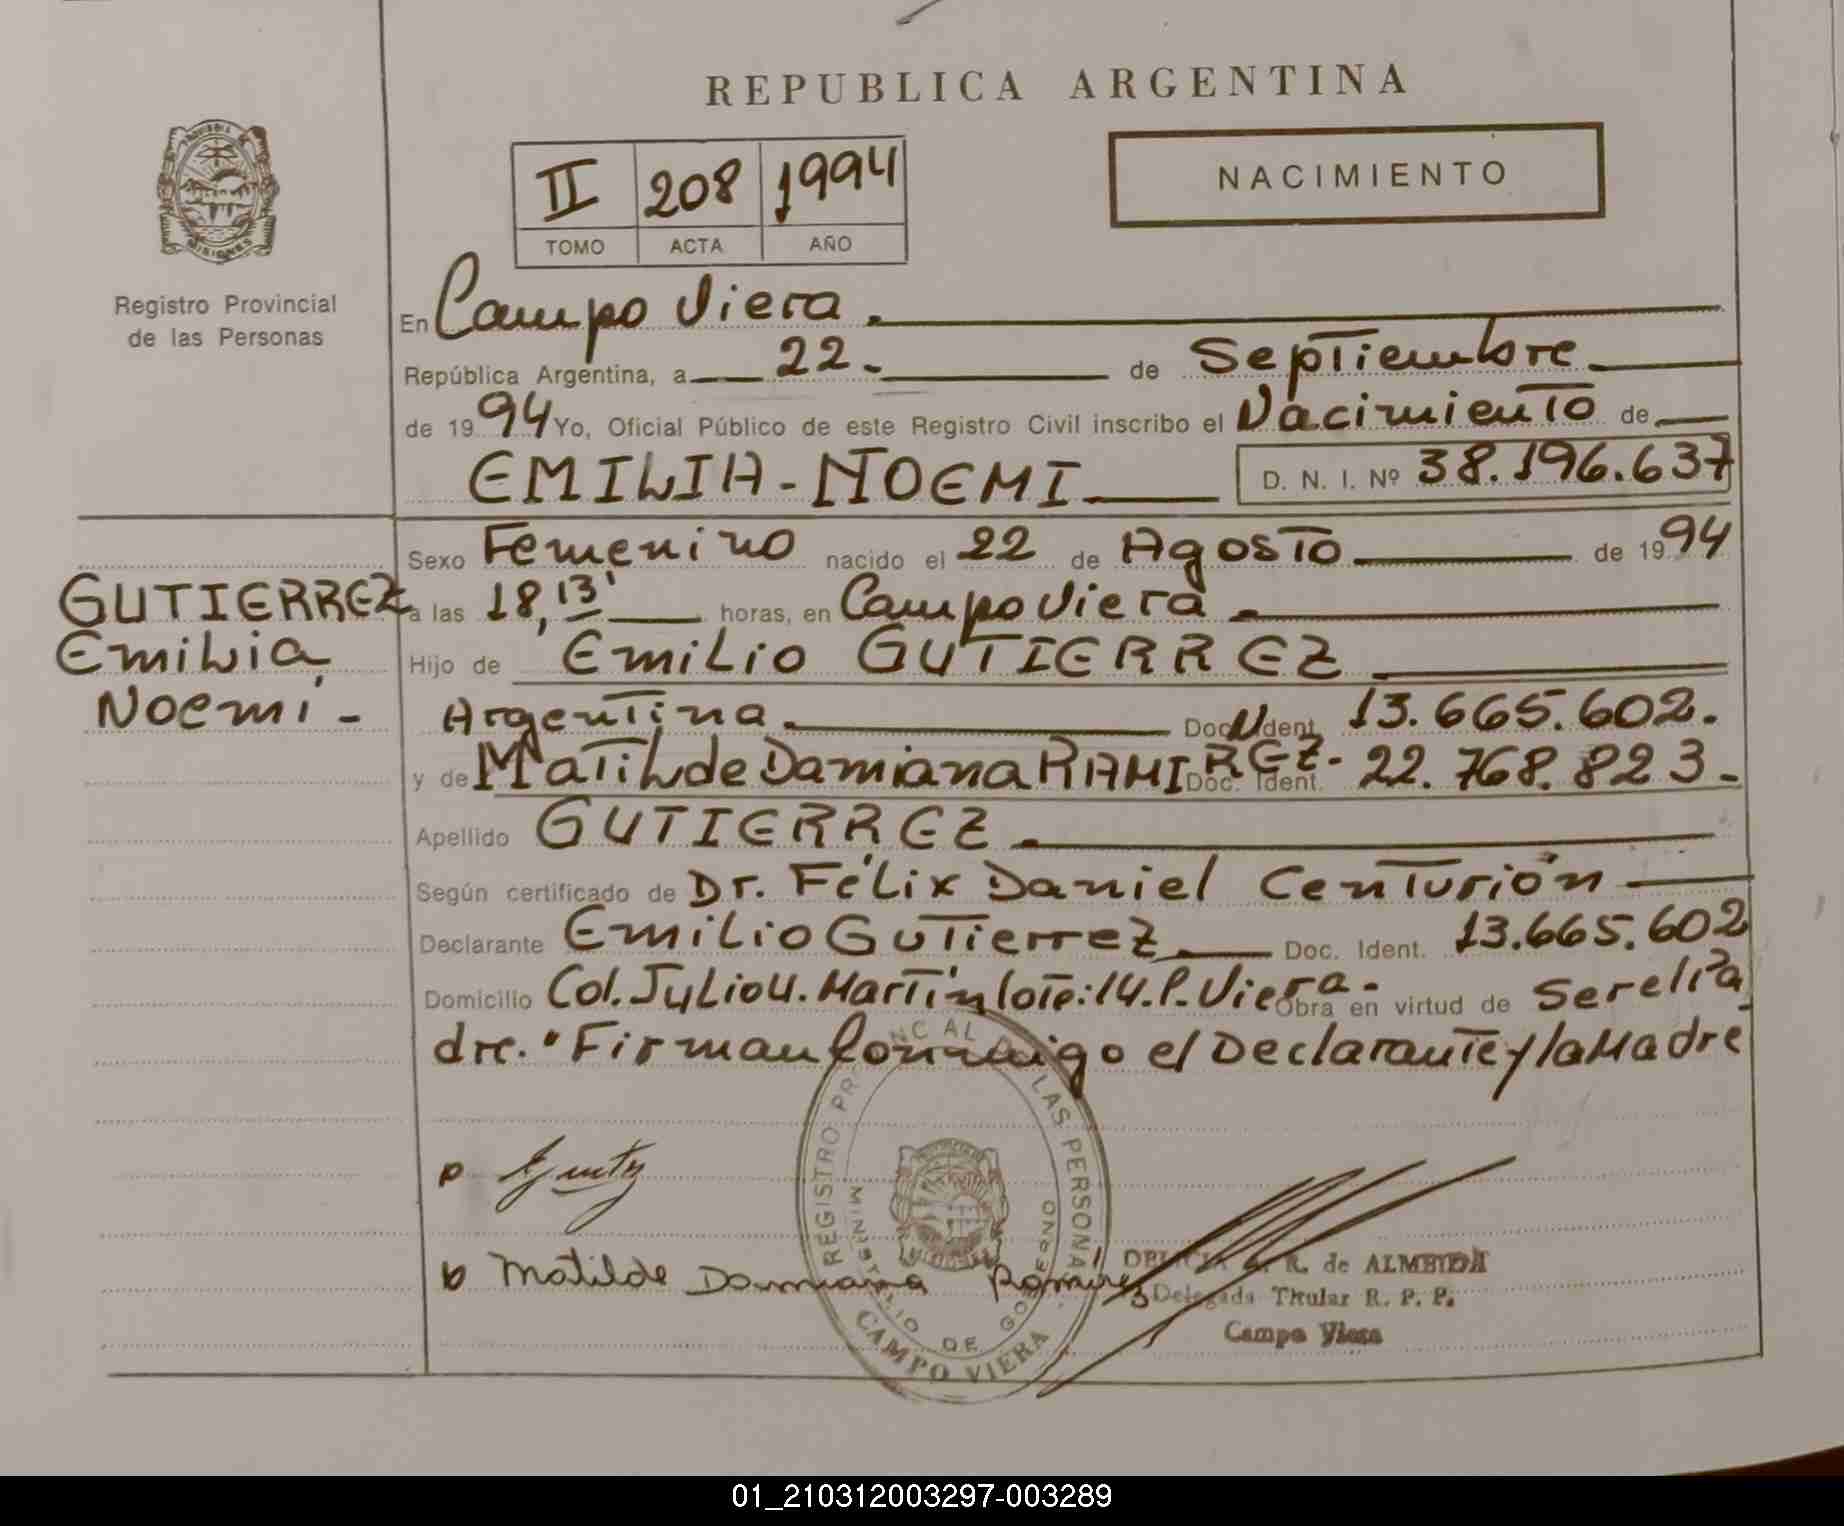 REPUBLICA ARGENTINA
II 208 1994
TOMO ACTA AÑO
NACIMIENTO
MISIONES
Registro Provincial
de las Personas
En Campo Viera.
República Argentina, a 22.- de Septiembre
de 1994 Yo, Oficial Público de este Registro Civil inscribo el Nacimiento de
EMILIA-NOEMI D. N. I. Nº 38.196.637
Sexo Femenino nacido el 22 de Agosto de 1994
GUTIERREZ
Emilia
Noemí-
a las 18,13' horas, en Campo Viera.
Hijo de Emilio GUTIERREZ
Argentina. Doc. Ident. 13.665.602.
y de Matilde Damiana RAMIREZ- Doc. Ident. 22.768.823-
Apellido GUTIERREZ.
Según certificado de Dr. Félix Daniel Centurión
Declarante Emilio Gutierrez Doc. Ident. 13.665.602
Domicilio Col. Julio U. Martín lote:14. C. Viera- Obra en virtud de ser el Pa
dre. "Firman Conmigo el Declarante y la Madre
REGISTRO PROVINCIAL DE LAS PERSONAS
MINISTERIO DE GOBIERNO
CAMPO VIERA
Matilde Damiana Ramirez
R. de ALMEIDA
Delegada Titular R. P. P.
Campo Viera
01_210312003297-003289